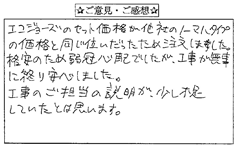 ☆ご意見・ご感想☆
エコジョーズのセット価格が他社のノーマルタイプ
の価格と同じ位いだったため注文しました。
格安のため若冠心配でしたが、工事が無事
に終り安心しました。
工事のご担当の説明が少し不足
していたとは思います。